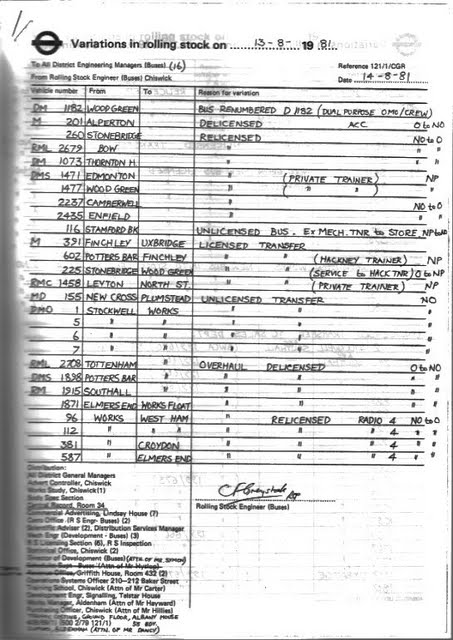 Variations in rolling stock on 13-8- 1981
To All District Engineering Managers (Buses) (16)
Reference 121/1/CGR
From Rolling Stock Engineer (Buses) Chiswick
Date 14-8-81
Vehicle number From To Reason for variation
DM 1182 WOOD GREEN BUS RENUMBERED D 1182 (DUAL PURPOSE OMO/CREW)
M 201 ALPERTON DELICENSED ACC. O to NO
260 STONEBRIDGE RELICENSED NO to O
RML 2679 BOW " " "
DM 1073 THORNTON H. " " "
DMS 1471 EDMONTON " (PRIVATE TRAINER) NP
1477 WOOD GREEN " ( " " ) "
2237 CAMBERWELL " NO to O
2435 ENFIELD " " "
116 STAMFORD BK UNLICENSED BUS. EX MECH. TNR to STORE NP to NO
M 391 FINCHLEY UXBRIDGE LICENSED TRANSFER
602 POTTERS BAR FINCHLEY " " (HACKNEY TRAINER) NP
225 STONEBRIDGE WOOD GREEN " " (SERVICE to HACK TNR) O to NP
RMC 1458 LEYTON NORTH ST. " " (PRIVATE TRAINER) NP
MD 155 NEW CROSS PLUMSTEAD UNLICENSED TRANSFER NO
DMO 1 STOCKWELL WORKS " " "
5 " " " " "
6 " " " " "
7 " " " " "
RML 2708 TOTTENHAM OVERHAUL DELICENSED O to NO
DMS 1898 POTTERS BAR " " " "
RM 1915 SOUTHALL " " " "
1871 ELMERS END WORKS FLOAT " " " "
96 WORKS WEST HAM " RELICENSED RADIO 4 NO to O
112 " " " " " 4 " "
381 " CROYDON " " " 4 " "
587 " ELMERS END " " " 4 " "
Distribution:
All District General Managers
Advert Controller, Chiswick
Works Study, Chiswick (1)
Body Spec Section
Central Record, Room 34
Commercial Advertising, Lindsey House (7)
Rolling Stock Engineer (Buses)
Office (R S Engr- Buses) (2)
Scientific Adviser (2), Distribution Services Manager
Mech Engr (Development - Buses) (3)
Licensing Section (6), R S Inspection
Office, Chiswick (2)
of Development (Buses) (ATTN. OF MR SEMON)
Griffith House, Room 432 (2)
Operations Systems Officer 210-212 Baker Street
Training School, Chiswick (Attn of Mr Carter)
Development Engr, Signalling, Telstar House
Manager, Aldenham (Attn of Mr Hayward)
Purchasing Officer, Chiswick (Attn of Mr Hillies)
GROUND FLOOR, ALBANY HOUSE
1500 2/79 (121/1)
ALDENHAM (ATTN. OF MR DANCY)